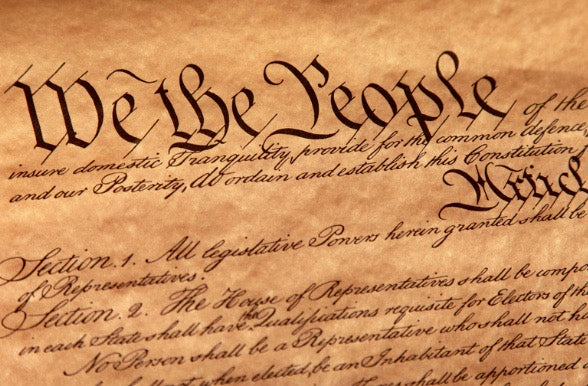 We the People of the
insure domestic Tranquility, provide for the common defence
and our Posterity, do ordain and establish this Constitution
Article
Section. 1. All legislative Powers herein granted shall be
of Representatives.
Section. 2. The House of Representatives shall be compo
in each State shall have the Qualifications requisite for Electors of the
No Person shall be a Representative who shall not ha
not, when elected, be an Inhabitant of that State
shall be apportioned